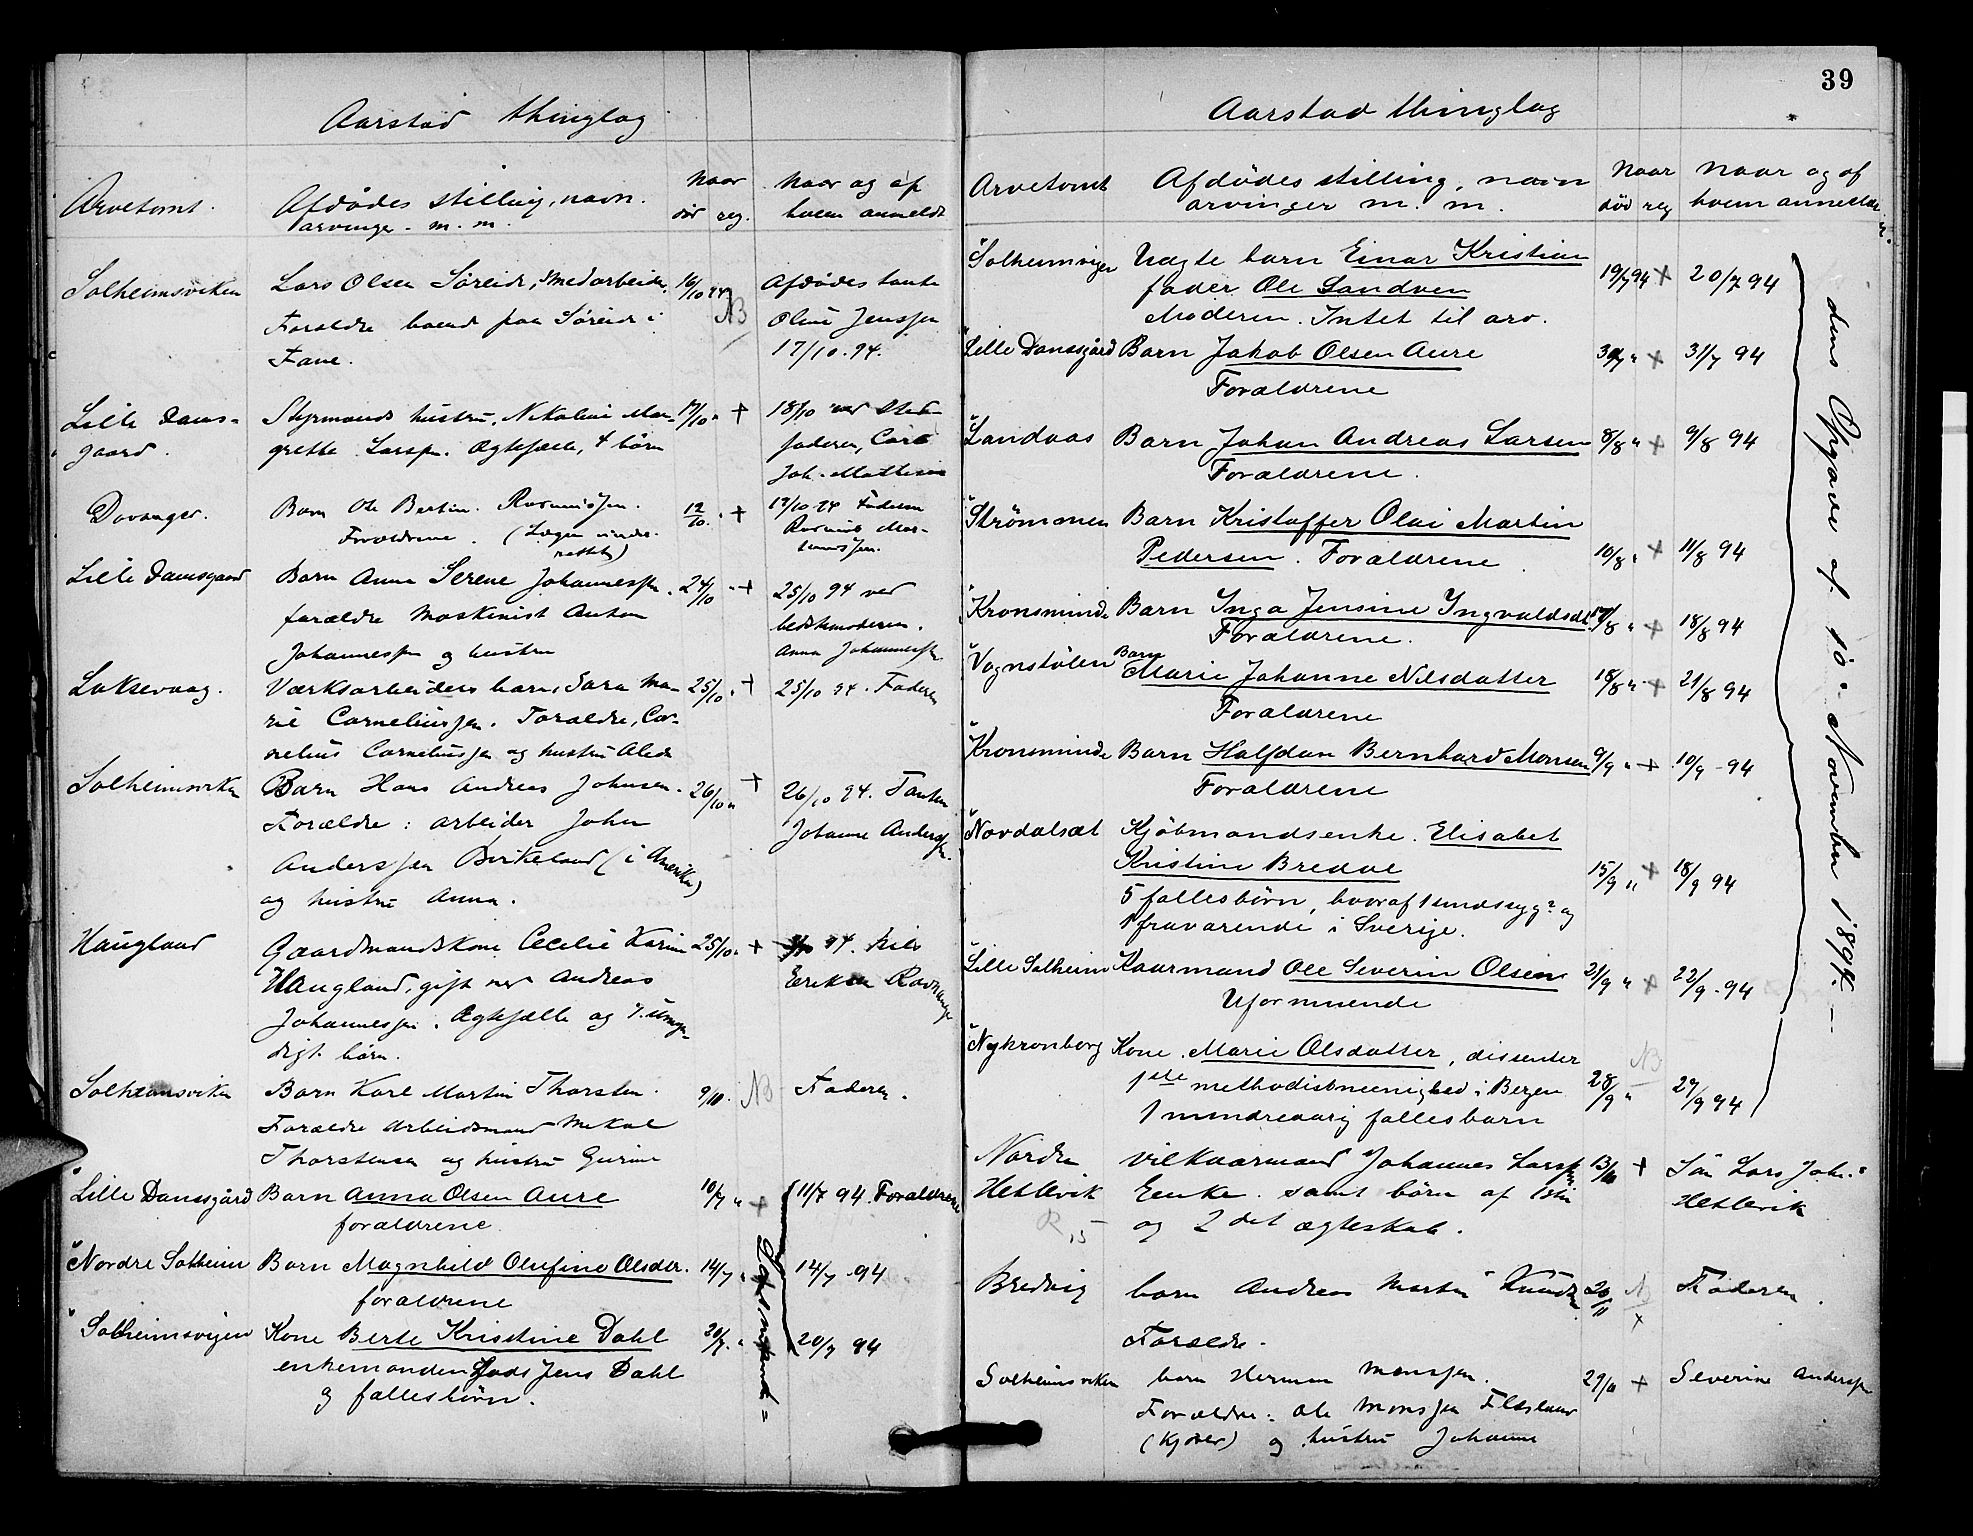 Aarstad thinglag
Arvetomt.
Afdødes stilling, navn.
arvinge. m. m.
naar
død reg.
Naar og af
hvem anmeldt
Solheimsviken
Lars Olsen Søreide, smedarbeider.
Forældre boend paa Søreide i
Fane.
16/10 94
NB
Afdødes tante
Oline Jenssen
17/10. 94.
Lille Dams-
gaard.
Styrmands hustru, Nikoline Mar-
grethe Larsen. Ægtefælle, 4 børn
17/10 " +
18/10 ved Sted-
faderen, Carl
Joh. Mathisen
Davanger.
Barn Ole Bertin Rasmussen.
Forældrene. (Lægen under-
rettet)
12/10. " +
12/10 94 Faderen
Rasmus
Lille Damsgaard
Barn Anna Serene Johannessen.
forældre Maskinist Anton
Johannessen og hustru
24/10 " +
25/10 94 ved
bedstemoderen.
Anna Johannessen
Laksevaag.
Værksarbeiders barn, Sara Ma-
rie Corneliussen. Forældre, Cor-
nelius Corneliussen og hustru Alida
25/10 " +
25/10 94. Faderen
Solheimsviken
Barn Hans Andreas Johnsen.
Forældre: arbeider John
Anderssen Birkeland (i Amerika)
og hustru Anna.
26/10 " +
26/10 94. Tanten
Johanne Anderssen.
Haugland
Gaardmandskone Cecilie Karine
Haugland, gift med Andreas
Johannessen. Ægtefælle og 7 umyn-
digt børn.
25/10 " +
94. Nils
Eriksen Ravnanger
Solheimsviken
Barn Karl Martin Thorsten.
Forældre Arbeidsmand Mikal
Thorstensen og hustru Gurine
9/10. NB
Faderen.
" Lille Damsgård
Barn Anna Olsen Aure
forældrene
10/7 " +
11/7 94 Forældrene
" Nordre Solheim
Barn Magnhild Olufine Olsdtr.
forældrene
14/7 " +
14/7 94
" Solheimsvigen
Kone Berte Kristine Dahl
enkemanden Jens Dahl
og fællesbørn.
20/7. "
20/7 94
39
Aarstad thinglag
Arvetomt
Afdødes stilling, navn
arvinger m. m.
Naar
død reg
Naar og af
hvem anmeldt
" Solheimsvigen
Uægte barn Einar Kristian
fader Ole Sandven
Moderen. Intet til arv.
19/7 94 +
20/7 94
" Lille Damsgård
Barn Jakob Olsen Aure
Forældrene
30/7 " +
31/7 94
" Landaas
Barn Johan Andreas Larsen
Forældrene.
8/8 " +
9/8 94
" Strömonen
Barn Kristoffer Olai Martin
Pedersen. Forældrene
10/8 " +
11/8 94
" Kronsminde
Barn Inga Jensine Ingvaldsdtr
Forældrene.
17/8 " +
18/8 94
" Vognstölen
Barn
Marie Johanne Nilsdatter
Forældrene
18/8 " +
21/8 94
" Kronsminde
Barn Halfdan Bernhard Monsen
Forældrene
9/9 " +
10/9 - 94
" Novdalsæt
Kjöbmandsenke. Elisabet
Kristine Bredal
5 fællesbörn, hvoraf 1 sindssyg og
1 fraværende i Sverige.
15/9 " +
18/9 94
" Lille Solheim
Kaarmand Ole Severin Olsen
Uformuende
21/9 " +
22/9 - 94
" Nykronborg
Kone. Marie Olsdatter, dissenter
1ste methodistmenighed i Bergen
1 mindreaarig fællesbarn
NB
28/9 "
29/9 94
dens Opgave af 10. November 1894. —
Nordre
Hetlevik
R,15
Vilkaarmand Johannes Larssen
Eenke. samt børn af 1ste
og 2 det ægteskab.
13/11 +
Søn Lars Joh.
Hetlevik
Bredvig
barn Andreas Martin Knudsen
Forældre.
20/11 +
Faderen.
Solheimsviken
barn Herman Monssen.
Forældre: Ole Monssen
(Kjøver) og hustru Johanne
29/11 +
Severine Anderssen